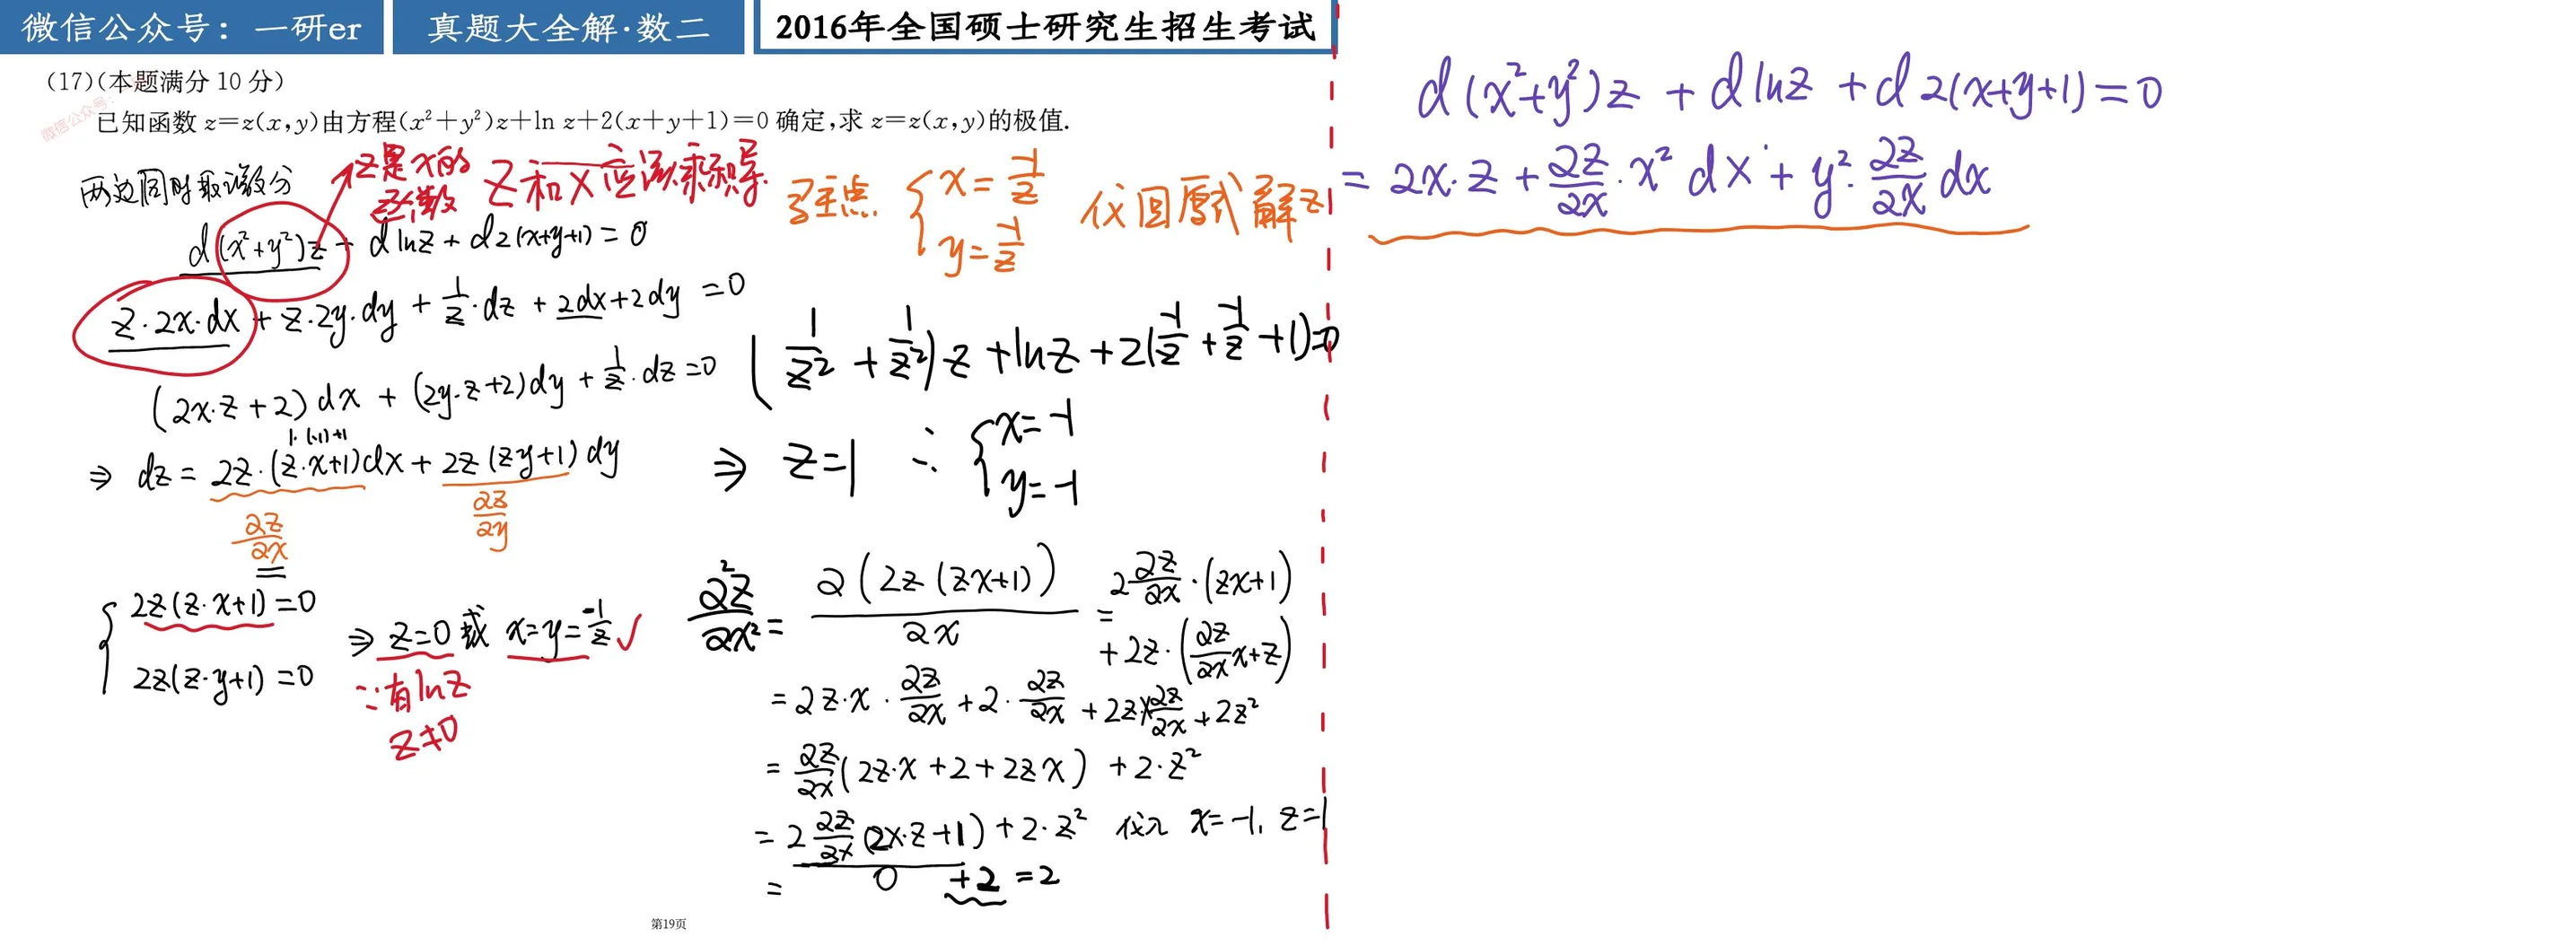 微信公众号：一研er
真题大全解·数二
2016年全国硕士研究生招生考试
(17)(本题满分 10 分)
微信公众号：
已知函数 z=z(x,y)由方程(x²+y²)z+ln z+2(x+y+1)=0 确定,求 z=z(x,y)的极值.
两边同时取微分
z是x的
函数
z和x应该乘积导.
d(x²+y²)z + d lnz + d2(x+y+1) = 0
z·2x·dx + z·2y·dy + 1/z·dz + 2dx+2dy = 0
(2x·z+2)dx + (2y·z+2)dy + 1/z·dz = 0
1·(-1)+1
⇒ dz = 2z·(z·x+1)dx + 2z(zy+1)dy
∂z/∂x
∂z/∂y
{ 2z(z·x+1)=0
2z(z·y+1)=0
⇒ z=0 或 x=y=-1/z ✓
∵有lnz
z≠0
驻点 { x=-1/z
y=-1/z
代回原式解z
(1/z²+1/z²)z+lnz+2(-1/z+-1/z+1)=0
⇒ z=1 ∴ { x=-1
y=-1
∂²z/∂x² = ∂(2z(zx+1))/∂x = 2∂z/∂x·(zx+1)
+2z·(∂z/∂x x+z)
=2z·x·∂z/∂x+2·∂z/∂x+2zx∂z/∂x+2z²
=∂z/∂x(2z·x+2+2zx)+2·z²
=2∂z/∂x(2x·z+1)+2·z² 代入 x=-1, z=1
= 0 +2 =2
d(x²+y²)z + d lnz + d 2(x+y+1)=0
= 2x·z + ∂z/∂x·x² dx + y²·∂z/∂x dx
第19页